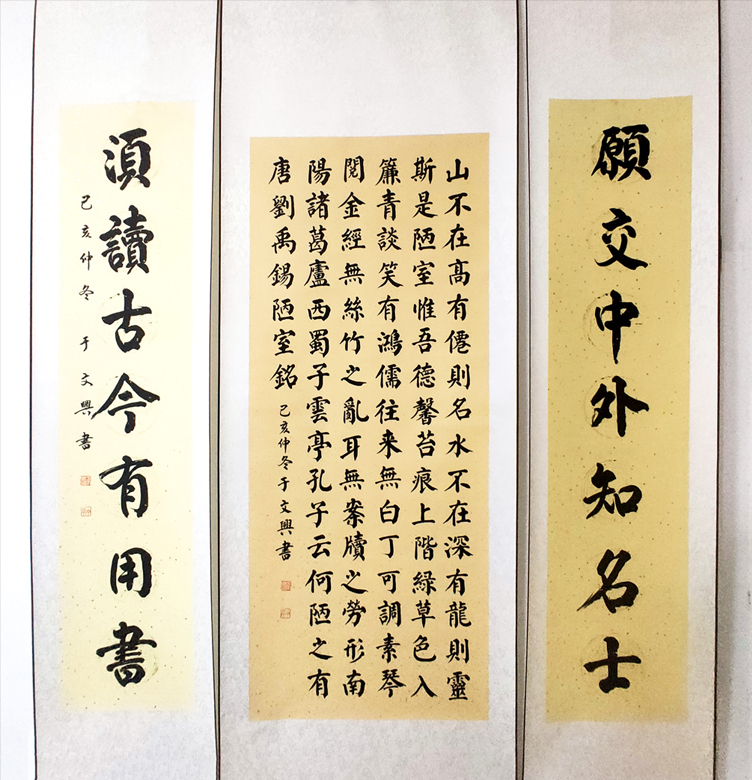 願交中外知名士
山不在髙有僊則名水不在深有龍則靈
斯是陋室惟吾德馨苔痕上階綠草色入
簾青談笑有鴻儒往来無白丁可調素琴
閱金經無絲竹之亂耳無案牘之勞形南
陽諸葛廬西蜀子雲亭孔子云何陋之有
唐劉禹錫陋室銘 己亥仲冬于文興書
湏讀古今有用書
己亥仲冬 于文興書